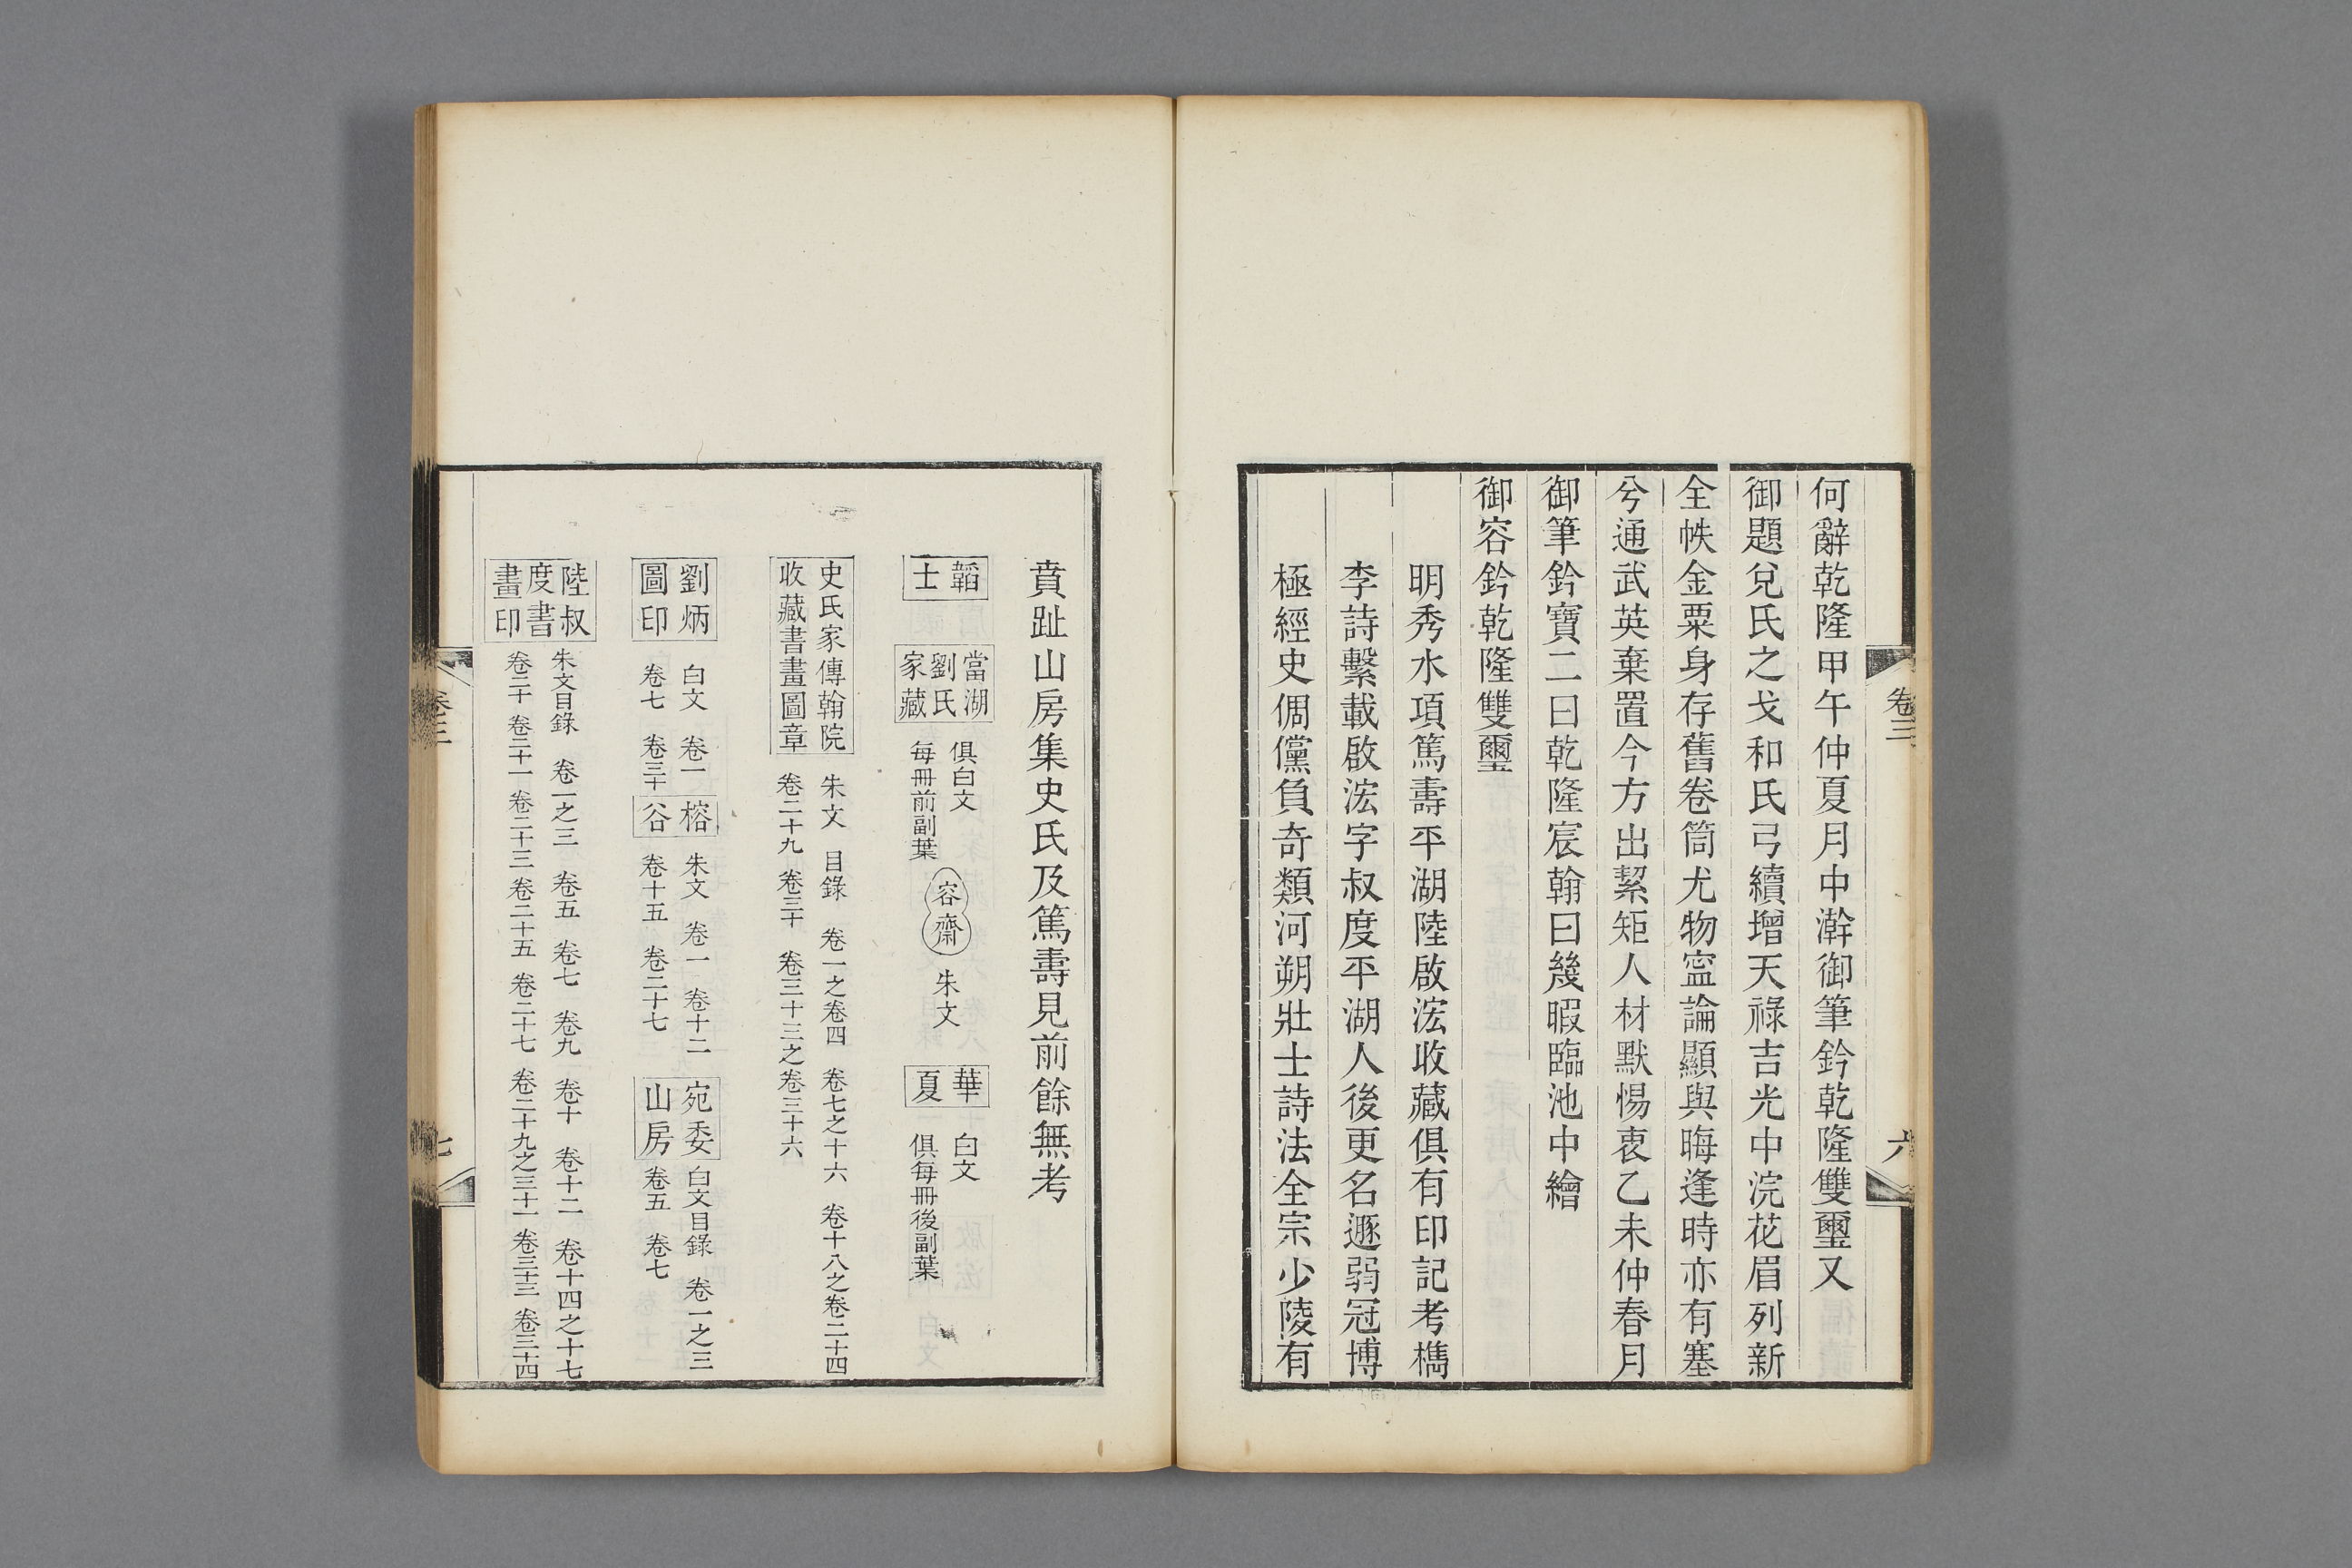 何辭乾隆甲午仲夏月中澣御筆鈐乾隆雙璽又
御題兌氏之戈和氏弓續增天祿吉光中浣花眉列新
全帙金粟身存舊卷筒尤物寍論顯與晦逢時亦有塞
兮通武英棄置今方出絜矩人材默惕衷乙未仲春月
御筆鈐寶二曰乾隆宸翰曰幾暇臨池中繪
御容鈐乾隆雙璽
明秀水項篤壽平湖陸啟浤收藏俱有印記考檇
李詩繫載啟浤字叔度平湖人後更名遯弱冠博
極經史倜儻負奇類河朔壯士詩法全宗少陵有
卷三
六
賁趾山房集史氏及篤壽見前餘無考
韜
士
當湖
劉氏
家藏
俱白文
每冊前副葉
容齋
朱文
華
夏
白文
俱每冊後副葉
史氏家傳翰院
收藏書畫圖章
朱文 目錄 卷一之卷四 卷七之十六 卷十八之卷二十四
卷二十九 卷三十 卷三十三之卷三十六
劉炳
圖印
白文 卷一
卷七 卷三十
榕
谷
朱文 卷一 卷十二
卷十五 卷二十七
宛委
山房
白文目錄 卷一之三
卷五 卷七
陸叔
度書
畫印
朱文目錄 卷一之三 卷五 卷七 卷九 卷十 卷十二 卷十四之十七
卷二十 卷二十一 卷二十三 卷二十五 卷二十七 卷二十九之三十一 卷三十三 卷三十四
卷三
七